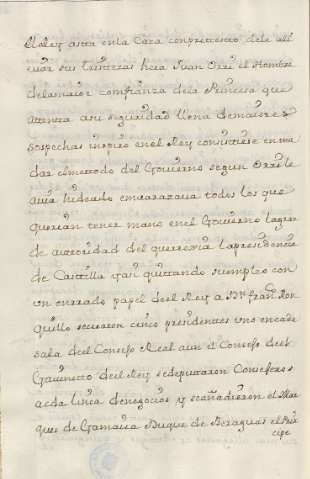 el Rey asta en la Caza con pretesto de le ali
viar sus tristezas hera Juan Orri el Hombre
de la maior confianza de la Princesa que
atenta a su siguridad llena de maiores
sospechas inspiro en el Rey consintiese en mu
dar el metodo del Govierno segun Orri le
avia hideado embarazava todos los que
querian tener mano en el Govierno la gran
de autoridad del que rexia la presidencia
de Castilla y an quittando su empleo con
un onrrado papel del Rey a Dn. Franco. Ron
quillo se crearon cinco presidentes uno en cada
sala del Consejo Real aun el Consejo del
Gavinetto del Rey se deputaron Consejeros
a cada linea de negocios y se añadieron el Mar
ques de Gamaria Duque de Beraguas el Prin
cipe